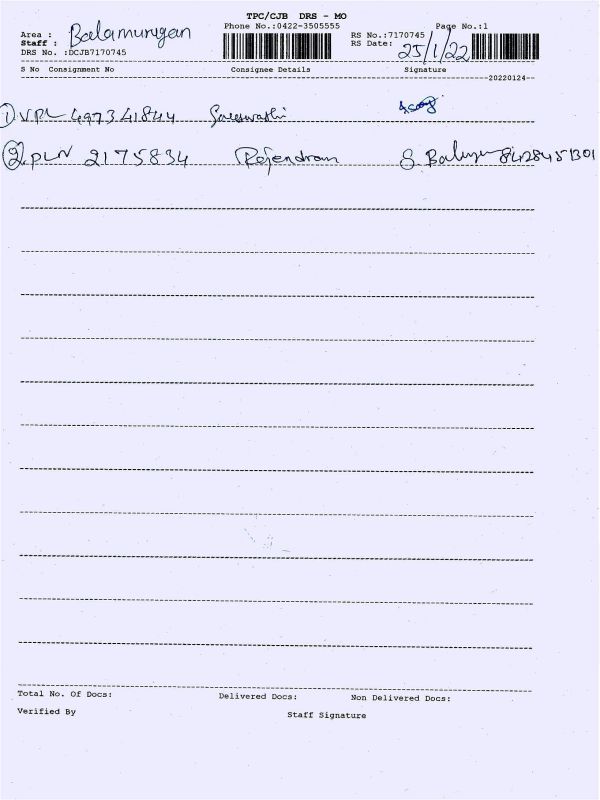 TPC/CJB DRS - MO
Phone No.:0422-3505555 Page No.:1
Area : Balamurugan RS No.:7170745
Staff : RS Date: 25/1/22
DRS No. :DCJB7170745
S No Consignment No Consignee Details Signature
20220124
1) VPL 497341844
2) PLN 2175834 Rajendram S. 8428451301
Total No. Of Docs: Delivered Docs: Non Delivered Docs:
Verified By Staff Signature